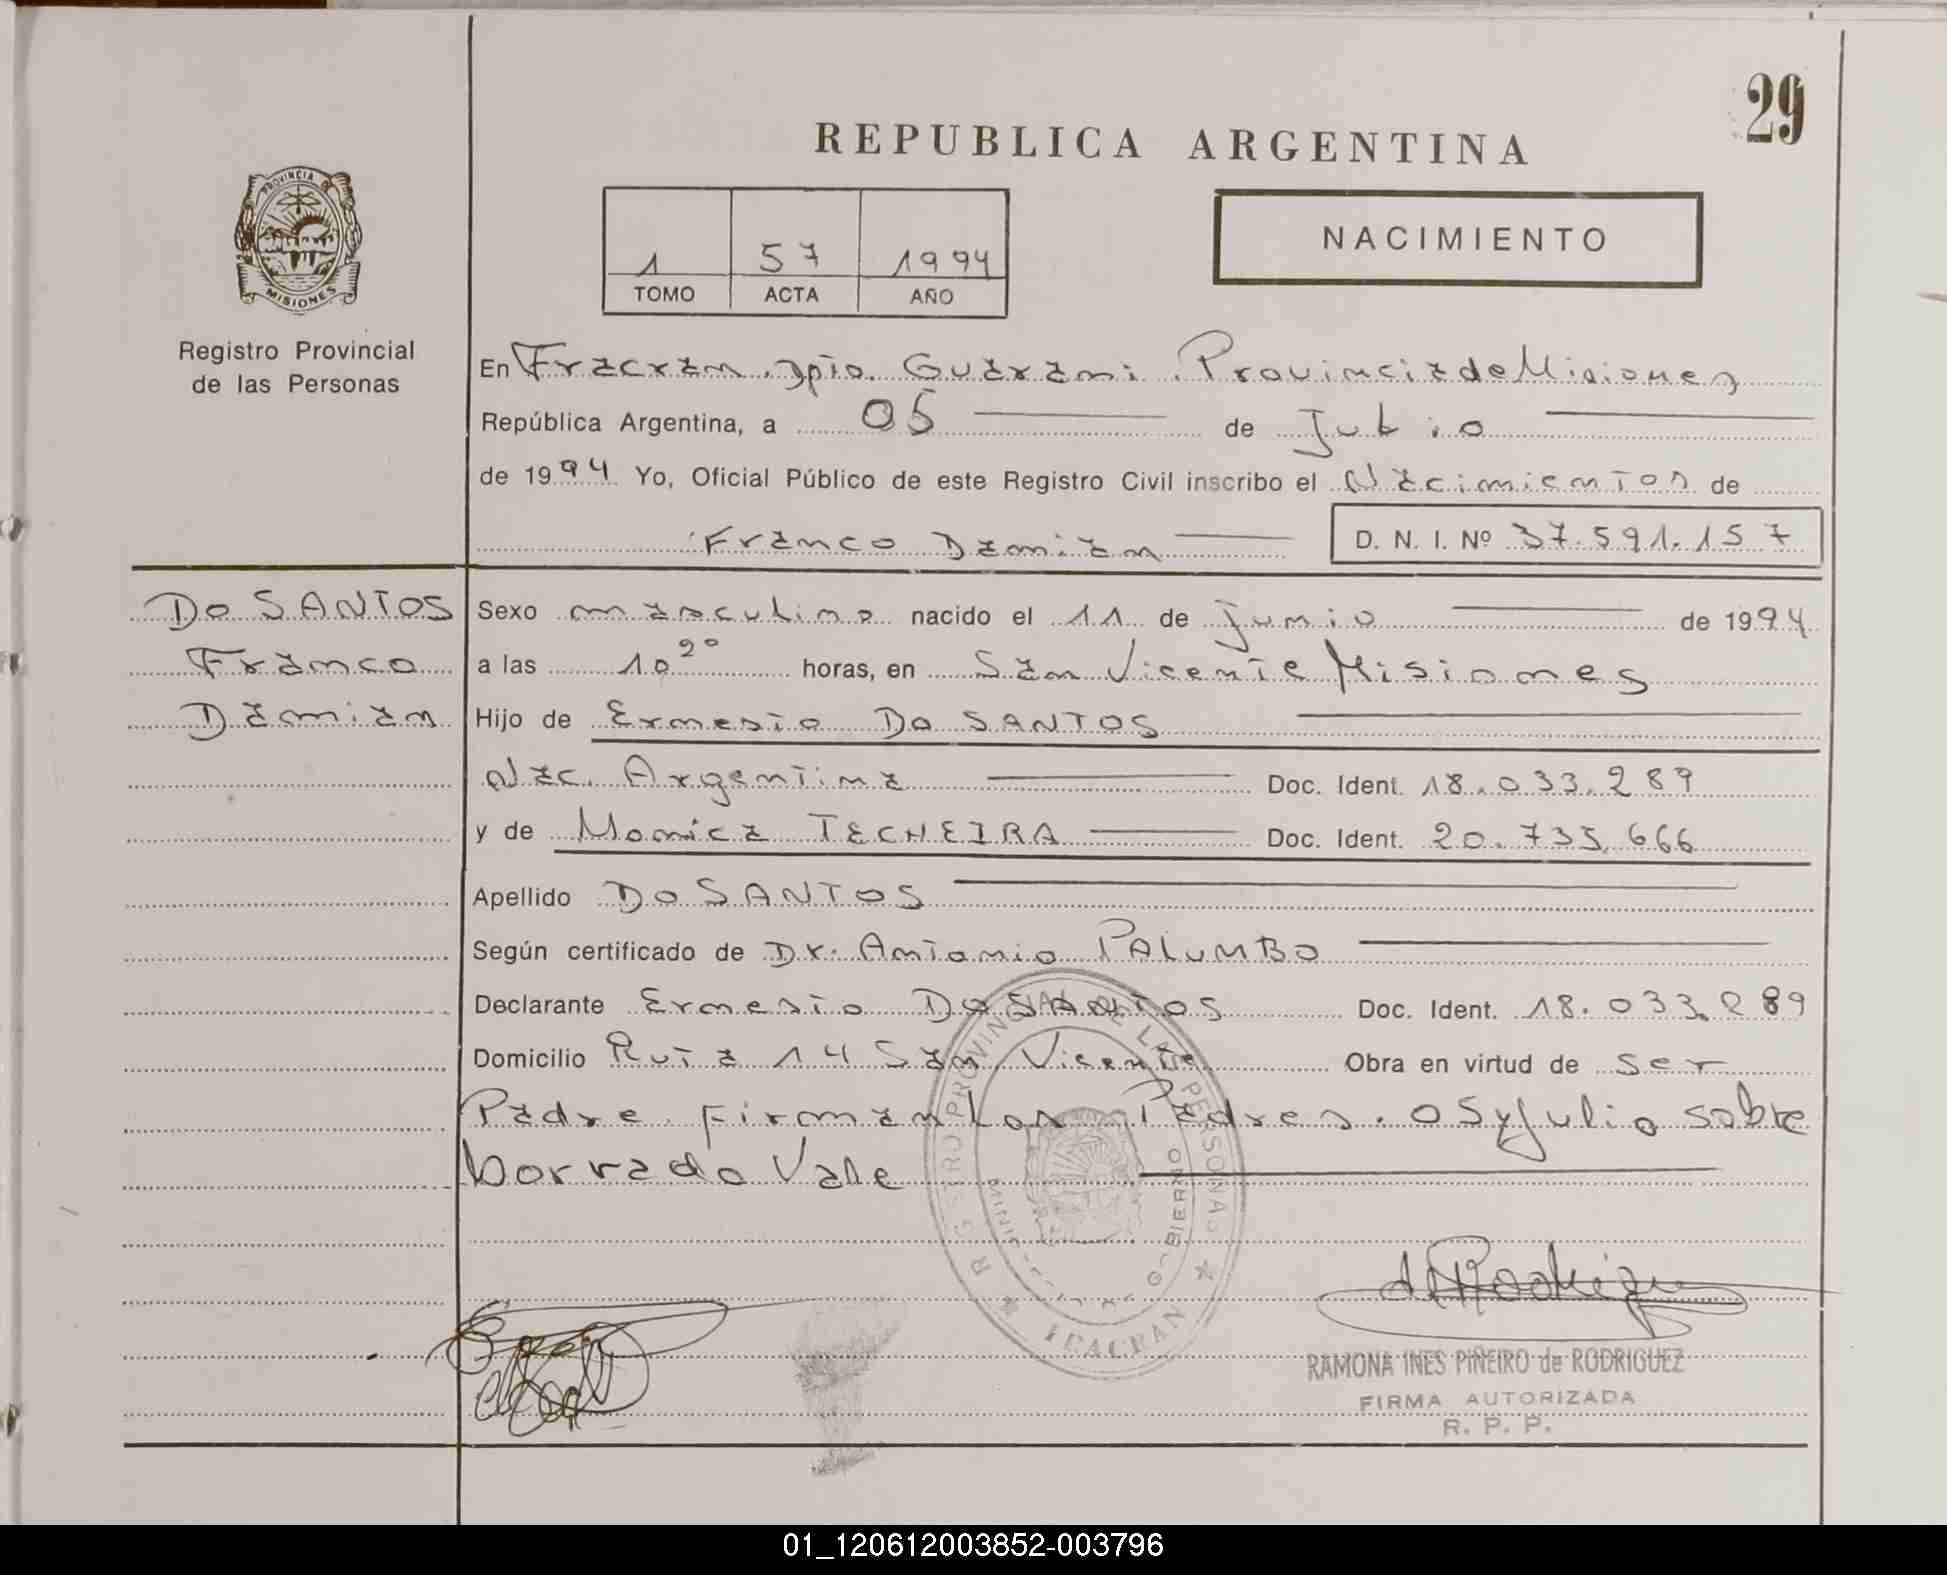 29
REPUBLICA ARGENTINA
PROVINCIA DE
MISIONES
Registro Provincial
de las Personas
1 57 1994
TOMO ACTA AÑO
NACIMIENTO
En Fracran, Dpto. Guarani Provincia de Misiones
República Argentina, a 05 de Julio
de 1994 Yo, Oficial Público de este Registro Civil inscribo el Nacimientos de
Franco Damian D. N. I. Nº 37.591.157
Do SANTOS
Franco
Damian
Sexo masculino nacido el 11 de Junio de 1994
a las 10 20 horas, en San Vicente Misiones
Hijo de Ernesto Do SANTOS
Nac. Argentina Doc. Ident. 18.033.289
y de Monica TECHEIRA Doc. Ident. 20.735.666
Apellido Do SANTOS
Según certificado de Dr. Antonio PALUMBO
Declarante Ernesto Do SANTOS Doc. Ident. 18.033.289
Domicilio Ruta 14 San Vicente Obra en virtud de ser
Padre. Firman Los Padres. 05 y Julio sobre
borrado Vale
REGISTRO PROVINCIAL DE LAS PERSONAS
FRACRAN
RAMONA INES PIÑEIRO de RODRIGUEZ
FIRMA AUTORIZADA
R. P. P.
01_120612003852-003796